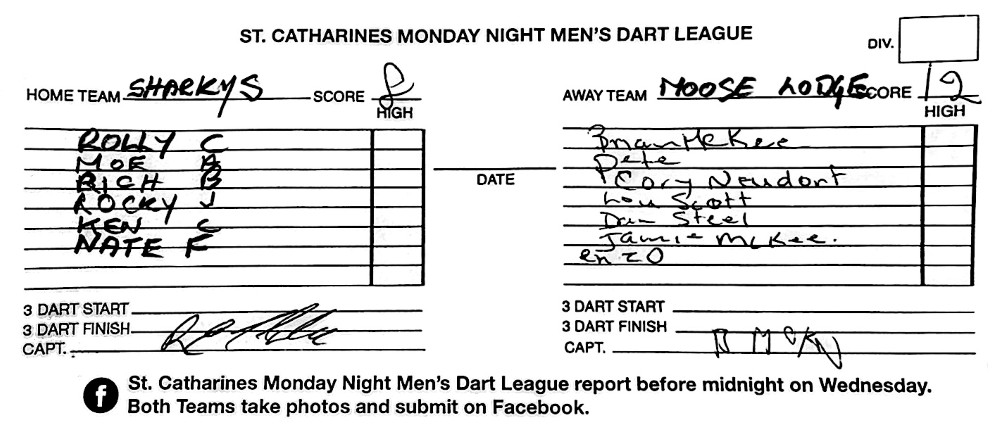 ST. CATHARINES MONDAY NIGHT MEN'S DART LEAGUE
DIV.
HOME TEAM SHARKYS SCORE 8
HIGH
AWAY TEAM MOOSE LODGE SCORE 12
HIGH
ROLLY C
MOE A
RICH B
ROCKY J
KEN C
NATE F
DATE
Brian McKee
Pete
Cory Neudorf
Lou Scott
Dan Steel
Jamie McKee.
enzo
3 DART START
3 DART FINISH
CAPT.
3 DART START
3 DART FINISH
CAPT.
f St. Catharines Monday Night Men's Dart League report before midnight on Wednesday.
Both Teams take photos and submit on Facebook.